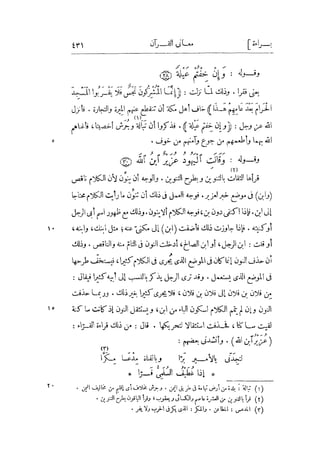 براءة] معانى القرآن ٤٣١
وقوله : وَإِنْ خِفْتُمْ عَيْلَةً (٢٨)
يعنى فقرا . وذلك لمّا نزلت : ﴿إِنَّمَا الْمُشْرِكُونَ نَجَسٌ فَلَا يَقْرَبُوا الْمَسْجِدَ
الْحَرَامَ بَعْدَ عَامِهِمْ هَـٰذَا﴾ خاف أهل مكة أن تنقطع عنهم الميرة والتجارة . فأنزل
الله عز وجل : ﴿وَإِنْ خِفْتُمْ عَيْلَةً﴾ . فذكروا أن تَبَالة وجُرَش أخصبتا، فأغناهم
الله بهما وأطعمهم من جوع وآمنهم من خوف . ٥
وقوله : وَقَالَتِ الْيَهُودُ عُزَيْرٌ ابْنُ اللهِ (٣٠)
قرأها الثقات بالتنوين وبطرح التنوين . والوجه أن ينوّن لأن الكلام ناقص
(وابن) فى موضع خبر لعزير. فوجه العمل فى ذلك أن تنوّن ما رأيت الكلام محتاجا
إلى ابن. فإذا اكتفى دون بن ، فوجه الكلام ألا ينون. وذلك مع ظهور اسم أبى الرجل
أو كنيته . فإذا جاوزت ذلك فأضفت (ابن) إلى مكنىّ عنه؛ مثل ابنك، وابنه، ١٠
أو قلت : ابن الرجل، أو ابن الصالح، أدخلت النون فى التامّ منه والناقص. وذلك
أن حذف النون إنما كان فى الموضع الذى يُجرى فى الكلام كثيرا، فيستخفّ طرحها
فى الموضع الذى يستعمل . وقد ترى الرجل يذكر بالنسب إلى أبيه كثيرا فيقال :
من فلان بن فلان إلى فلان بن فلان، فلا يجرى كثيرا بغير ذلك . وربما حذفت
النون وإن لم يتمّ الكلام لسكون الباء من ابن، ويستثقل النون إذ كانت ساكنة ١٥
لقيت ساكنا، فحذفت استثقالا لتحريكها . قال : من ذلك قراءة القرّاء :
(عُزَيْرُ ابْنُ الله) . وأنشدنى بعضهم :
لتجدنّى بالأمير برّا وبالقناة مِدْعَسا مِكَرّا (٣)
* إذا غُطَيفُ السُّلَمِىُّ فَرَّا *
(١) تبالة : بلدة من أرض تهامة فى طريق اليمن . وجرش مخلاف أى إقليم من مخاليف اليمن . ٢٠
(٢) قرأ بالتنوين من العشرة عاصم والكسائى ويعقوب ، وقرأ الباقون بطرح التنوين .
(٣) المدعس : المطاعن . والمكر : الذى يكر فى الحرب ولا يفر .